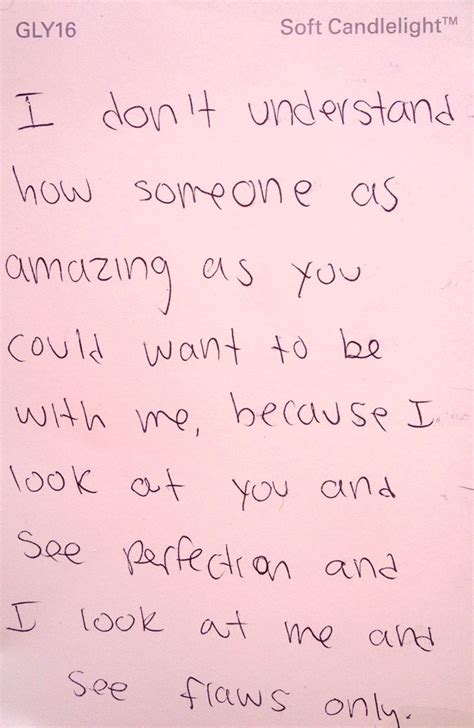 GLY16 Soft Candlelight™
I don't understand
how someone as
amazing as you
could want to be
with me, because I
look at you and
see perfection and
I look at me and
see flaws only.